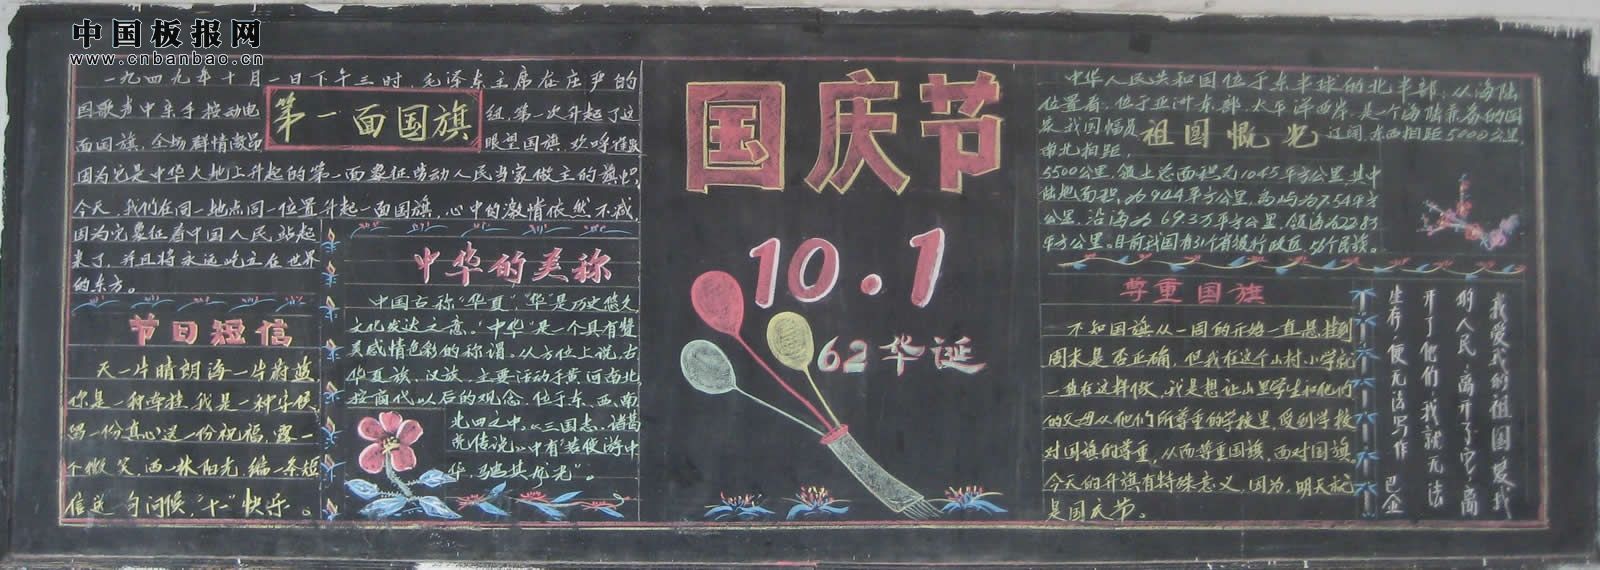 中国板报网
www.cnbanbao.cn
一九四九年十月一日下午三时,毛泽东主席在庄严的
国歌声中亲手按动电
钮,第一次升起了这
面国旗,全场群情激昂
眼望国旗,欢呼雀跃
第一面国旗
因为它是中华大地上升起的第一面象征劳动人民当家做主的旗帜。
今天,我们在同一地点同一位置升起一面国旗,心中的激情依然不减,
因为它象征着中国人民,站起
来了,并且将永远屹立在世界
的东方。
节日短信
天一片晴朗海一片蔚蓝
你是一种牵挂,我是一种守候
留一份真心送一份祝福,露一
个微笑,洒一抹阳光,编一条短
信送一句问候,“十一”快乐。
中华的美称
中国古称“华夏”,“华”是历史悠久
文化发达之意。“中华”是一个具有
灵感情色彩的称谓。从方位上说,古
华夏族、汉族,主要活动于黄河南北,
按商代以后的观念,位于东、西、南
北四之中。《三国志·诸葛
亮传说》中有“若使游中
华,骋其龙光”。
国庆节
10.1
62华诞
中华人民共和国位于东半球的北半部,从海陆
位置看,位于亚洲东部,太平洋西岸,是一个海陆兼备的国
家,我国幅员
祖国慨光
辽阔,东西相距5000公里,
南北相距,
5500公里,领土总面积为1045平方公里,其中
陆地面积,为944平方公里,岛屿为7.54平方
公里,沿海为693万平方公里,领海为22.8万
平方公里。目前我国有31个省级行政区,56个民族。
尊重国旗
不知国旗从一周的开始一直悬挂到
周末是否正确,但我在这个山村小学就
一直在这样做,我是想让山里学生和他们
的父母从他们所尊重的学校里,受到学校
对国旗的尊重,从而尊重国旗,面对国旗。
今天的升旗有特殊意义,因为,明天就
是国庆节。
我爱我的祖国爱我
的人民,离开了它,离
开了他们,我就无法
生存,便无法写作 巴金